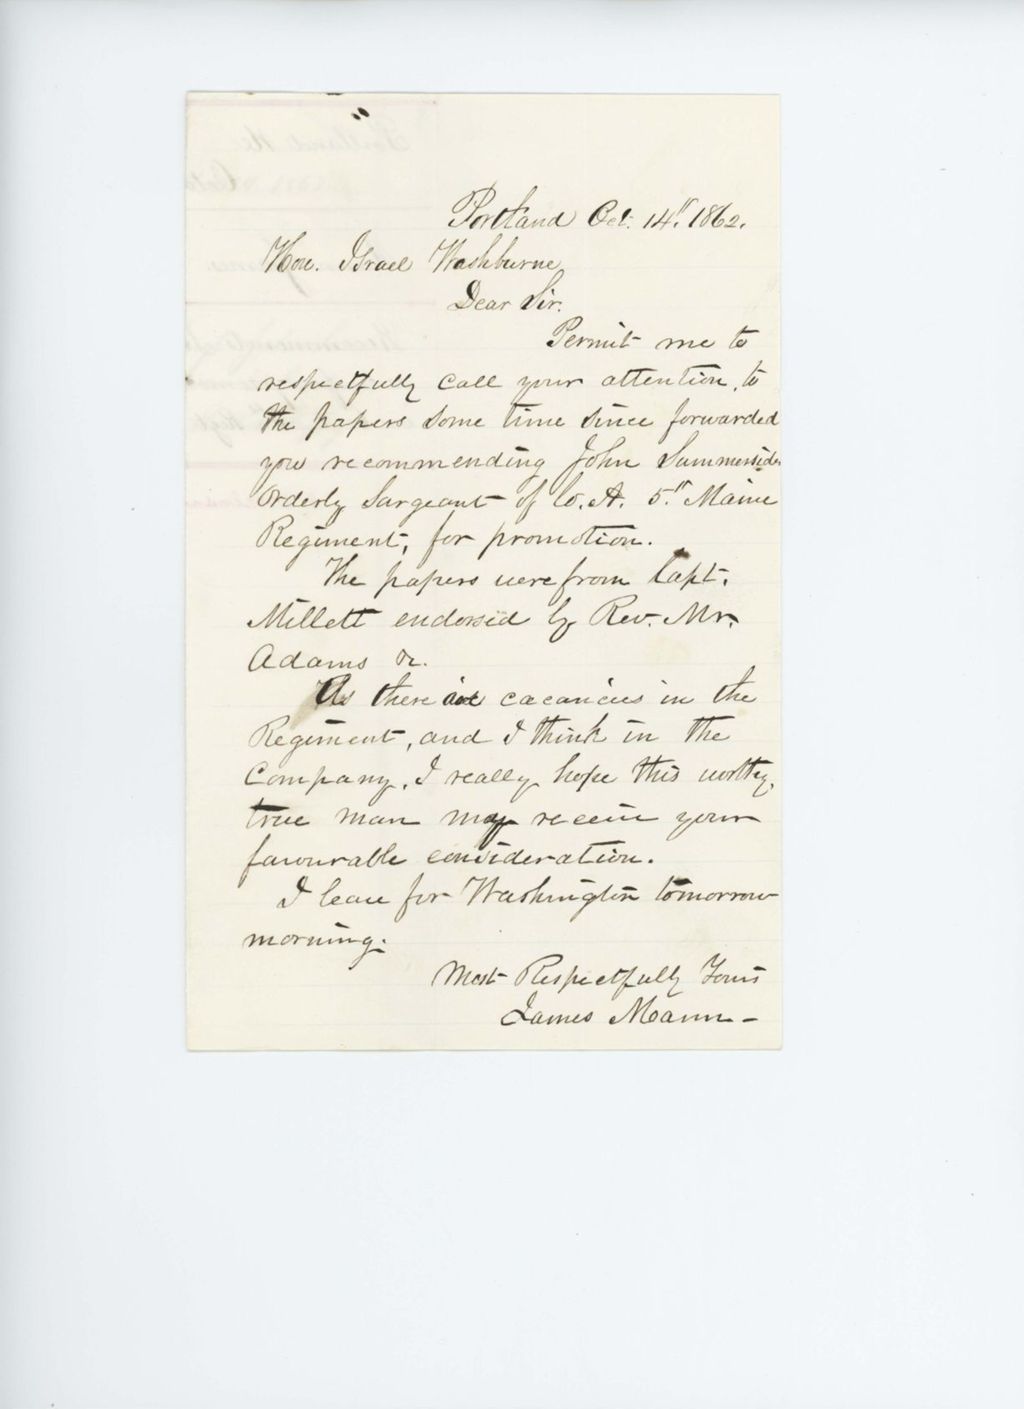 Portland Oct. 14". 1862.
Hon. Israel Washburne
Dear Sir.
Permit me to
respectfully call your attention, to
the papers some time since forwarded
you recommending John Summerside
Orderly Sargeant of Co. A. 5." Maine
Regiment, for promotion.
The papers were from Capt.
Millett endorsed by Rev. Mr.
Adams &c.
As there are vacancies in the
Regiment, and I think in the
Company, I really hope this worthy,
true man may receive your
favourable consideration.
I leave for Washington tomorrow
morning.
Most Respectfully Yours
James Mann -